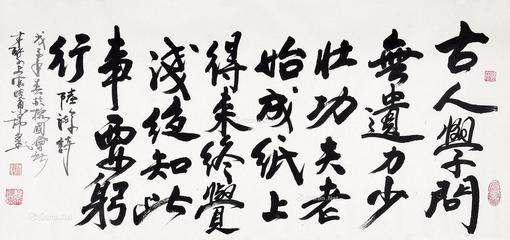 古人學問
無遺力少
壯功夫老
始成紙上
得來終覺
淺後知此
事要躬
行 陸游詩
戊子年春於